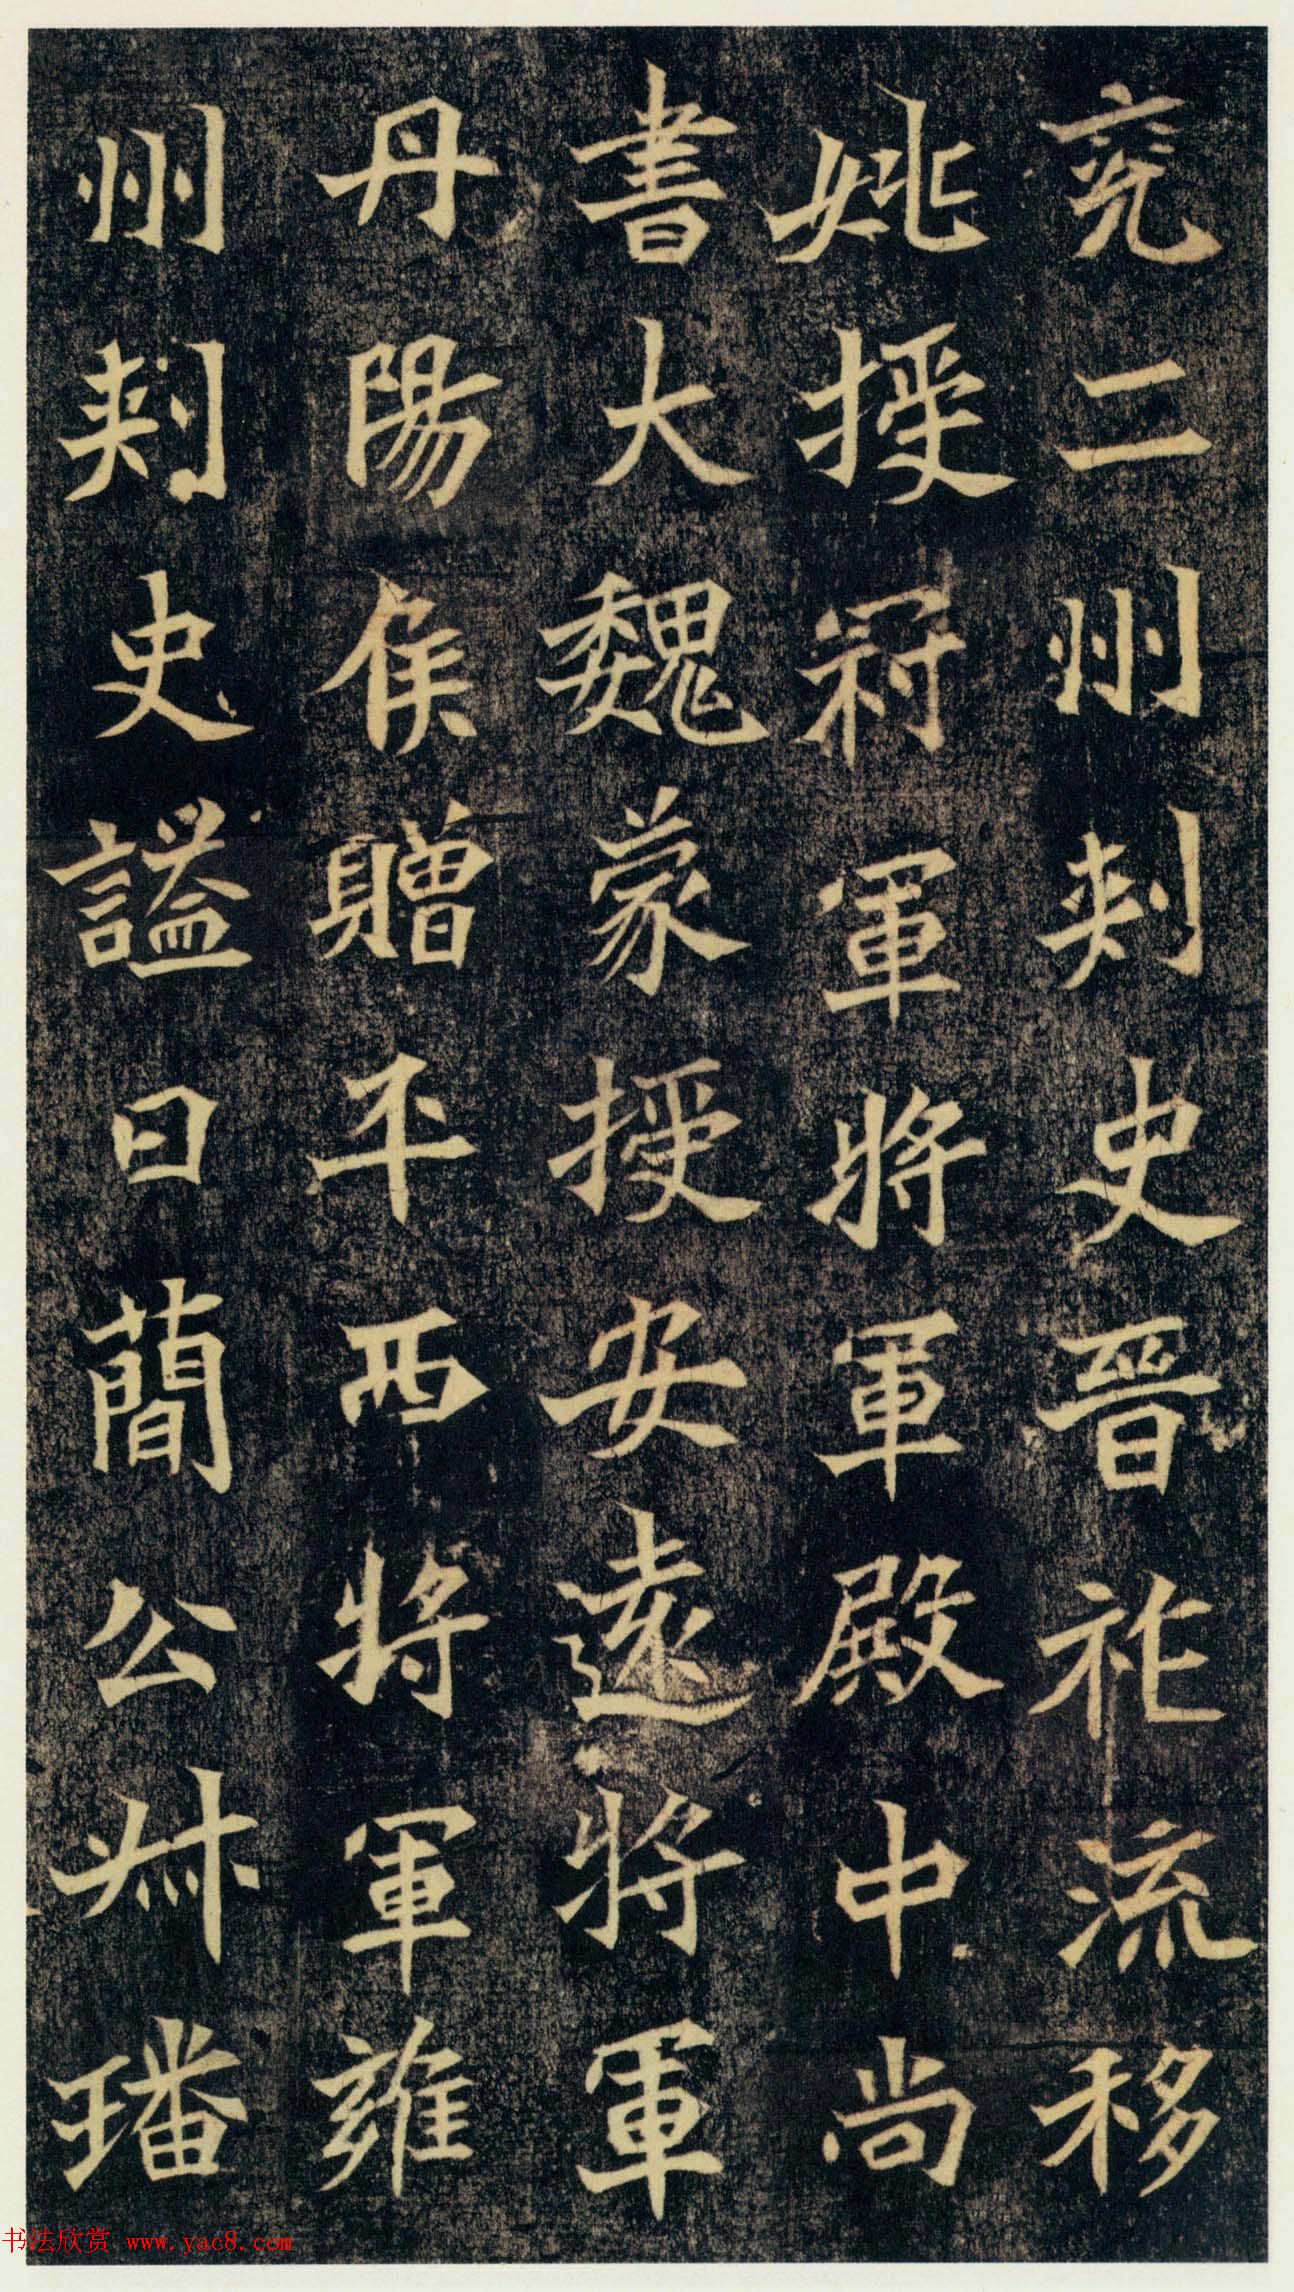 兗二州刾史晉祚流移
姚授冠軍將軍殿中尚
書大魏蒙授安遠將軍
丹陽侯贈平西將軍雍
州刾史謚曰蕳公叔璠
书法欣赏 www.yac8.com